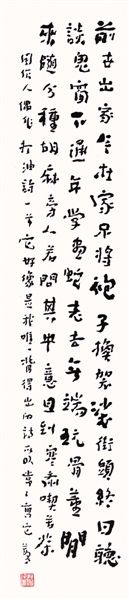 前世出家今在家不將袍子換袈裟街頭終日聽
談鬼窗下通年學畫蛇老去無端玩骨董閒
來隨分種胡麻旁人若問其中意且到寒齋喫苦茶
周作人偶作打油詩一首它好像是我唯一背得出的詩所以常常寫它